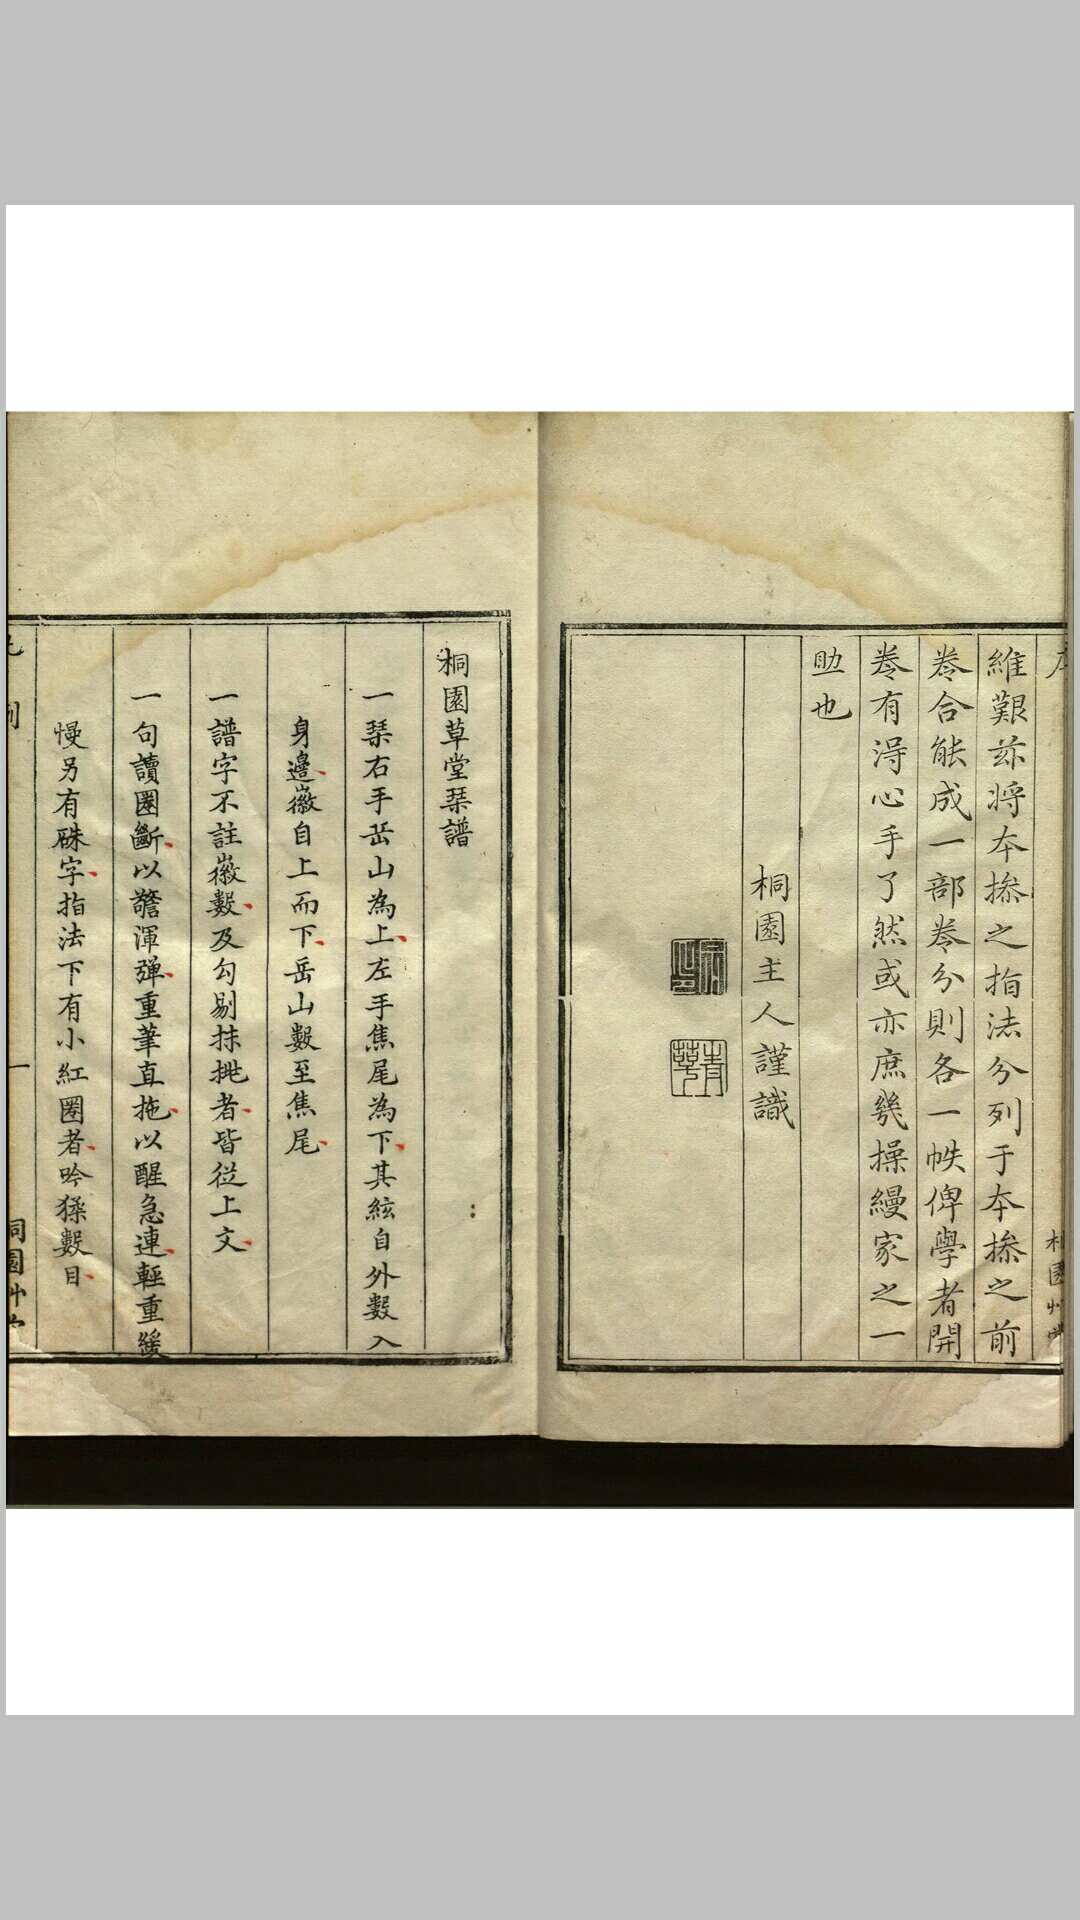 維艱茲将本掺之指法分列于本掺之前
卷合能成一部卷分則各一帙俾學者開
卷有淂心手了然或亦庶㡬操縵家之一
助也
桐園主人謹識
桐園草堂琹譜
一琹右手岳山為上左手焦尾為下其絃自外數入
身邉徽自上而下岳山數至焦尾
一譜字不註徽數及勾剔抹挑者皆從上文
一句讀圈斷以警渾弾重筆直拖以醒急連輕重緩
慢另有硃字指法下有小紅圈者吟猱數目
一